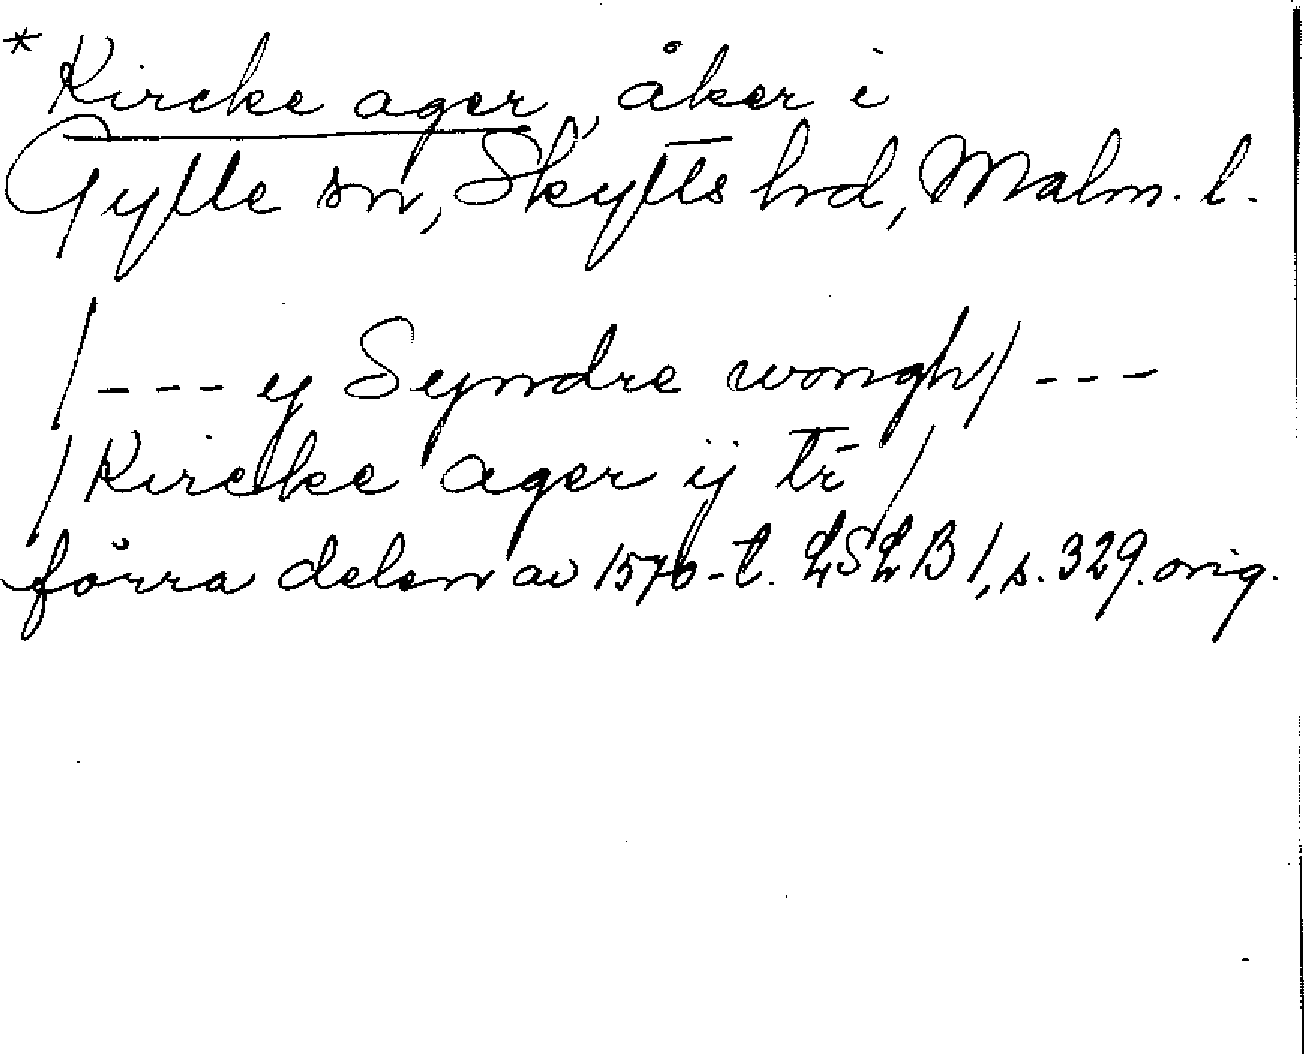 * Kircke ager, åker i
Gylle sn, Skytts hd, Malm. l.
/--- ij Syndre wongh/ ---
/Kircke ager ij tr̄/
förra delen av 1570-t. LSLB 1, s. 329. orig.